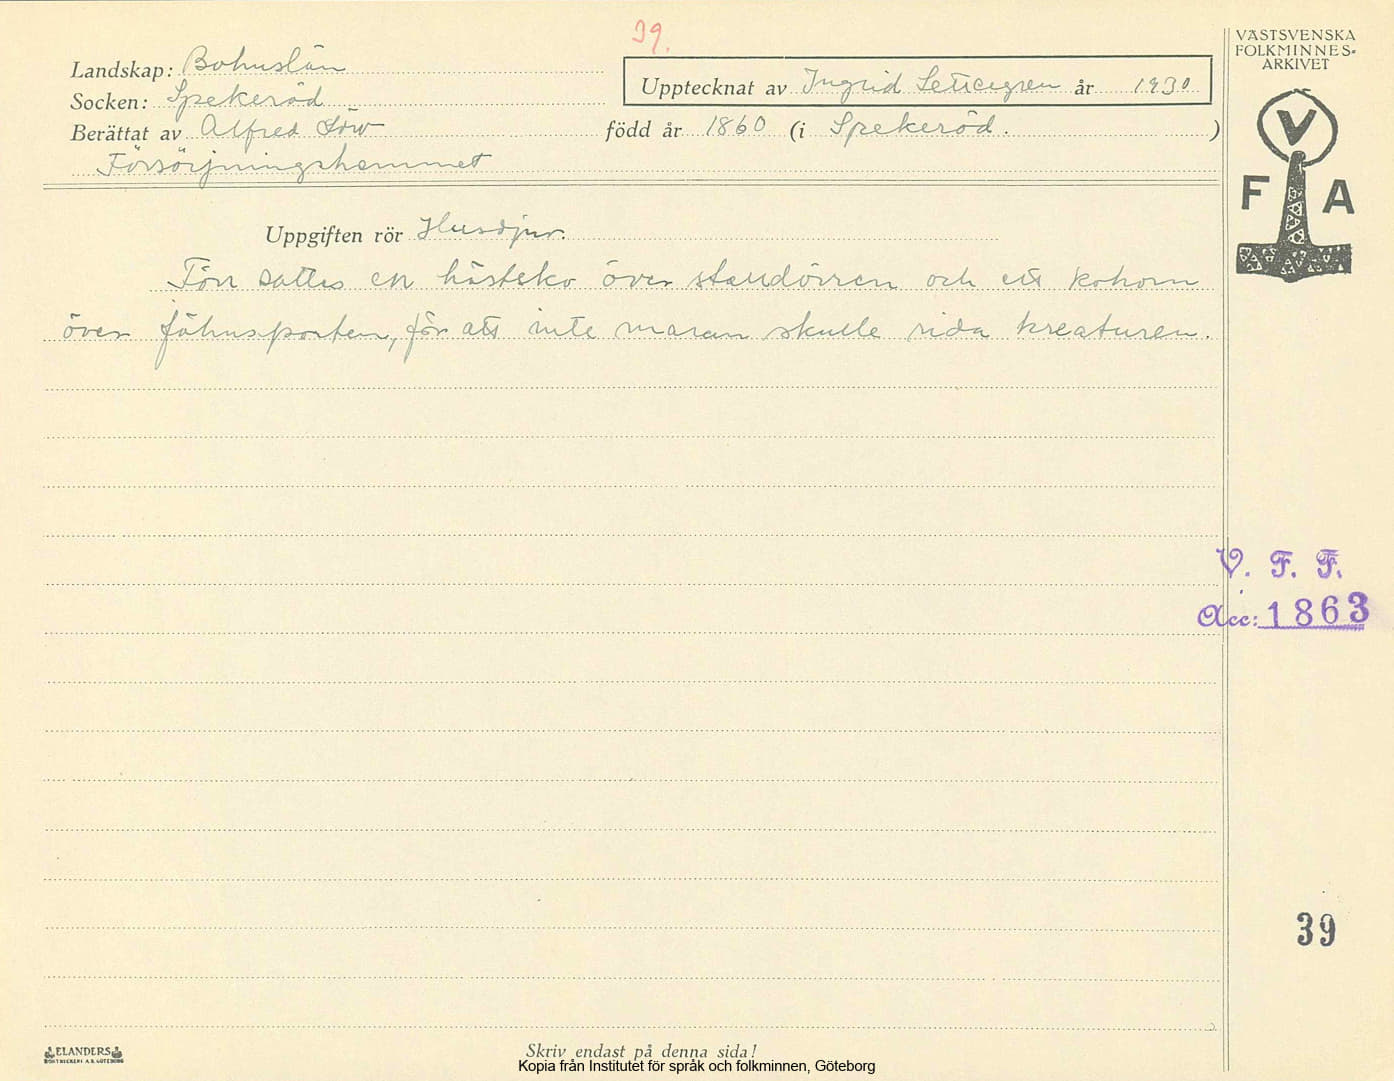 39.
VÄSTSVENSKA
FOLKMINNES-
ARKIVET
Landskap: Bohuslän
Upptecknat av Ingrid år 1930
Socken: Spekeröd
Berättat av Alfred Löw född år 1860 (i Spekeröd.)
Försörjningshemmet
V
F A
Uppgiften rör Husdjur.
Förr sattes en hästsko över stalldörren och ett kohorn
över fähusporten, för att inte maran skulle rida kreaturen.
V. F. F.
Acc: 1863
39
ELANDERS
BOKTRYCKERI A.B. GÖTEBORG
Skriv endast på denna sida!
Kopia från Institutet för språk och folkminnen, Göteborg